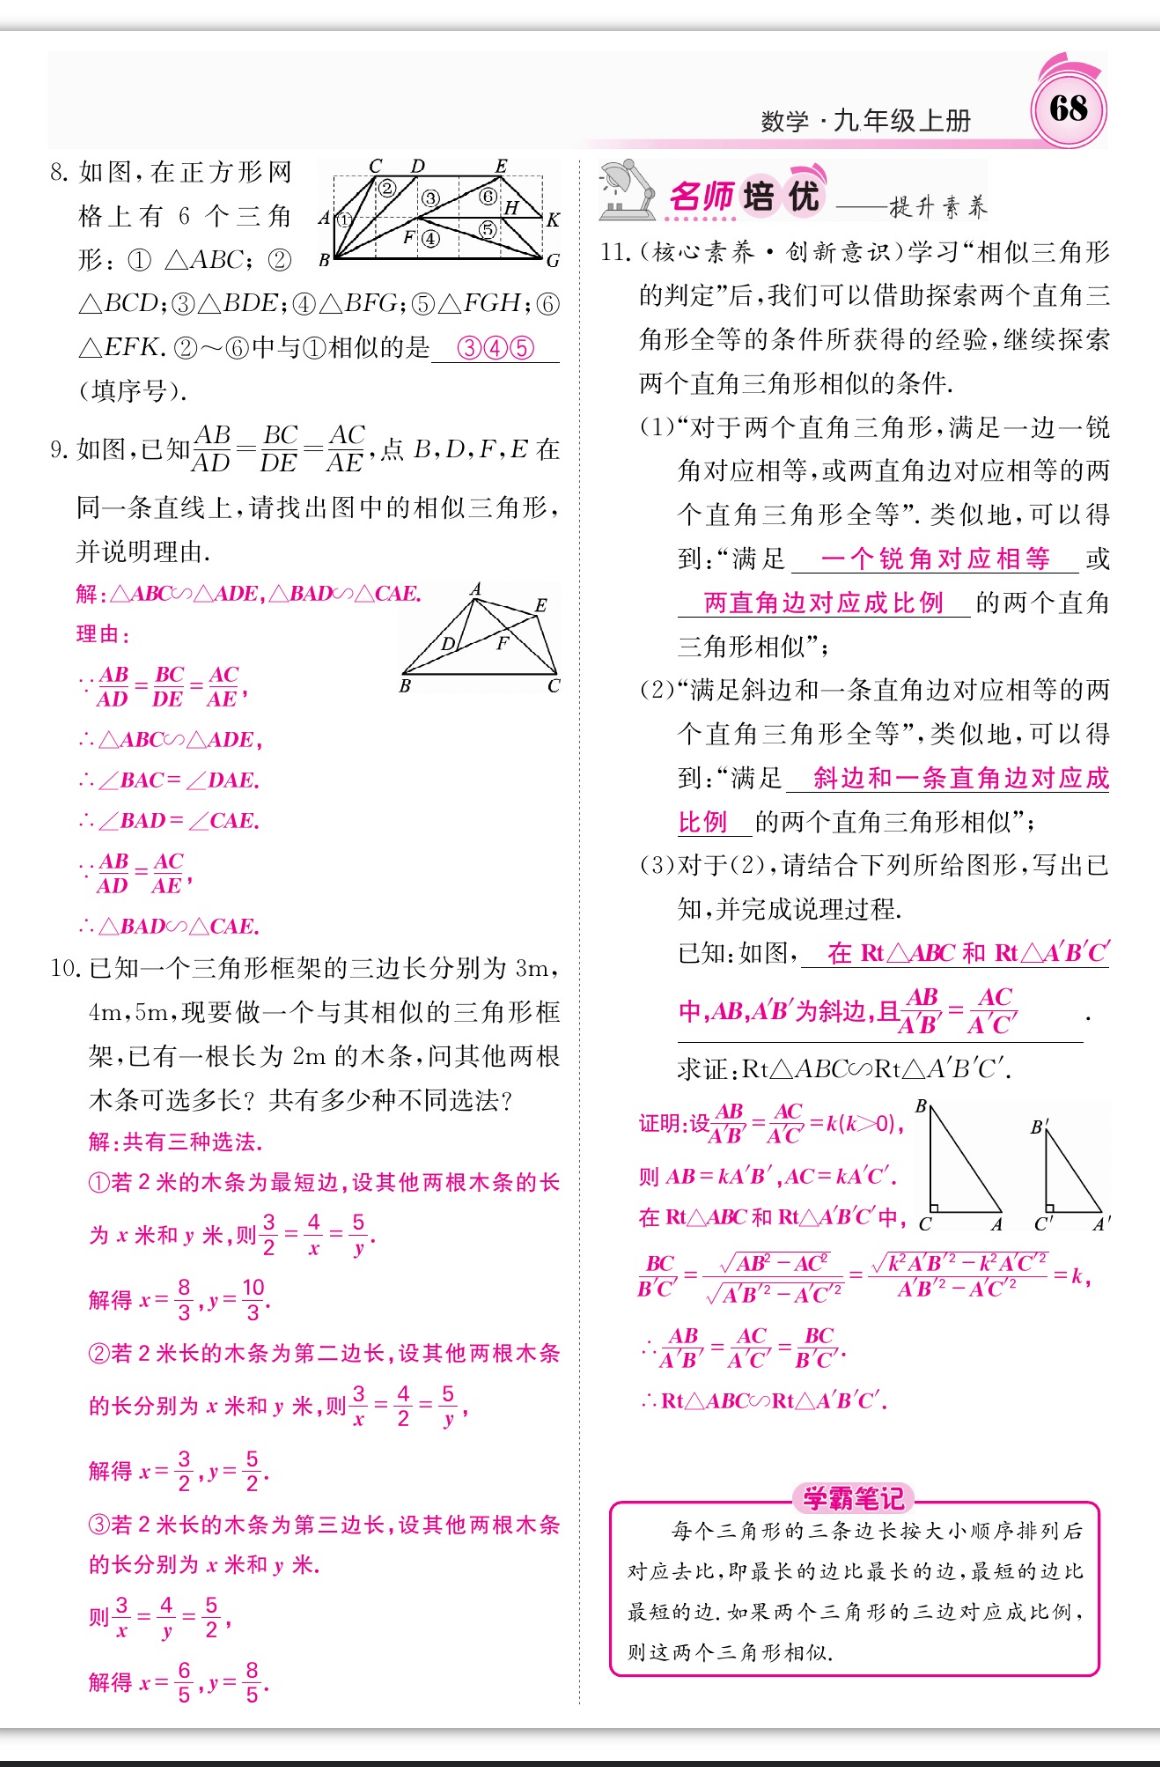 数学·九年级上册
68
8. 如图,在正方形网
格上有 6 个三角
形: ① △ABC; ②
△BCD;③△BDE;④△BFG;⑤△FGH;⑥
△EFK. ②~⑥中与①相似的是 ③④⑤
(填序号).
C D E
A ① ② ③ ⑥ H K
F ④ ⑤
B G
9. 如图,已知AB/AD=BC/DE=AC/AE,点 B,D,F,E 在
同一条直线上,请找出图中的相似三角形,
并说明理由.
解:△ABC∽△ADE,△BAD∽△CAE.
理由:
∵AB/AD=BC/DE=AC/AE,
∴△ABC∽△ADE,
∴∠BAC=∠DAE.
∴∠BAD=∠CAE.
∵AB/AD=AC/AE,
∴△BAD∽△CAE.
A
E
D F
B C
10. 已知一个三角形框架的三边长分别为 3m,
4m,5m,现要做一个与其相似的三角形框
架,已有一根长为 2m 的木条,问其他两根
木条可选多长? 共有多少种不同选法?
解:共有三种选法.
①若2米的木条为最短边,设其他两根木条的长
为 x 米和 y 米,则3/2=4/x=5/y.
解得 x=8/3,y=10/3.
②若2米长的木条为第二边长,设其他两根木条
的长分别为 x 米和 y 米,则3/x=4/2=5/y,
解得 x=3/2,y=5/2.
③若2米长的木条为第三边长,设其他两根木条
的长分别为 x 米和 y 米.
则3/x=4/y=5/2,
解得 x=6/5,y=8/5.
名师培优 ——提升素养
11. (核心素养·创新意识)学习“相似三角形
的判定”后,我们可以借助探索两个直角三
角形全等的条件所获得的经验,继续探索
两个直角三角形相似的条件.
(1)“对于两个直角三角形,满足一边一锐
角对应相等,或两直角边对应相等的两
个直角三角形全等”. 类似地,可以得
到:“满足 一个锐角对应相等 或
两直角边对应成比例 的两个直角
三角形相似”;
(2)“满足斜边和一条直角边对应相等的两
个直角三角形全等”,类似地,可以得
到:“满足 斜边和一条直角边对应成
比例 的两个直角三角形相似”;
(3)对于(2),请结合下列所给图形,写出已
知,并完成说理过程.
已知:如图, 在 Rt△ABC 和 Rt△A′B′C′
中,AB,A′B′为斜边,且AB/A′B′=AC/A′C′ .
求证:Rt△ABC∽Rt△A′B′C′.
证明:设AB/A′B′=AC/A′C′=k(k>0),
则 AB=kA′B′,AC=kA′C′.
在 Rt△ABC 和 Rt△A′B′C′中,
BC/B′C′=√(AB²-AC²)/√(A′B′²-A′C′²)=√(k²A′B′²-k²A′C′²)/(A′B′²-A′C′²)=k,
∴AB/A′B′=AC/A′C′=BC/B′C′.
∴Rt△ABC∽Rt△A′B′C′.
B B′
C A C′ A′
学霸笔记
每个三角形的三条边长按大小顺序排列后
对应去比,即最长的边比最长的边,最短的边比
最短的边. 如果两个三角形的三边对应成比例,
则这两个三角形相似.